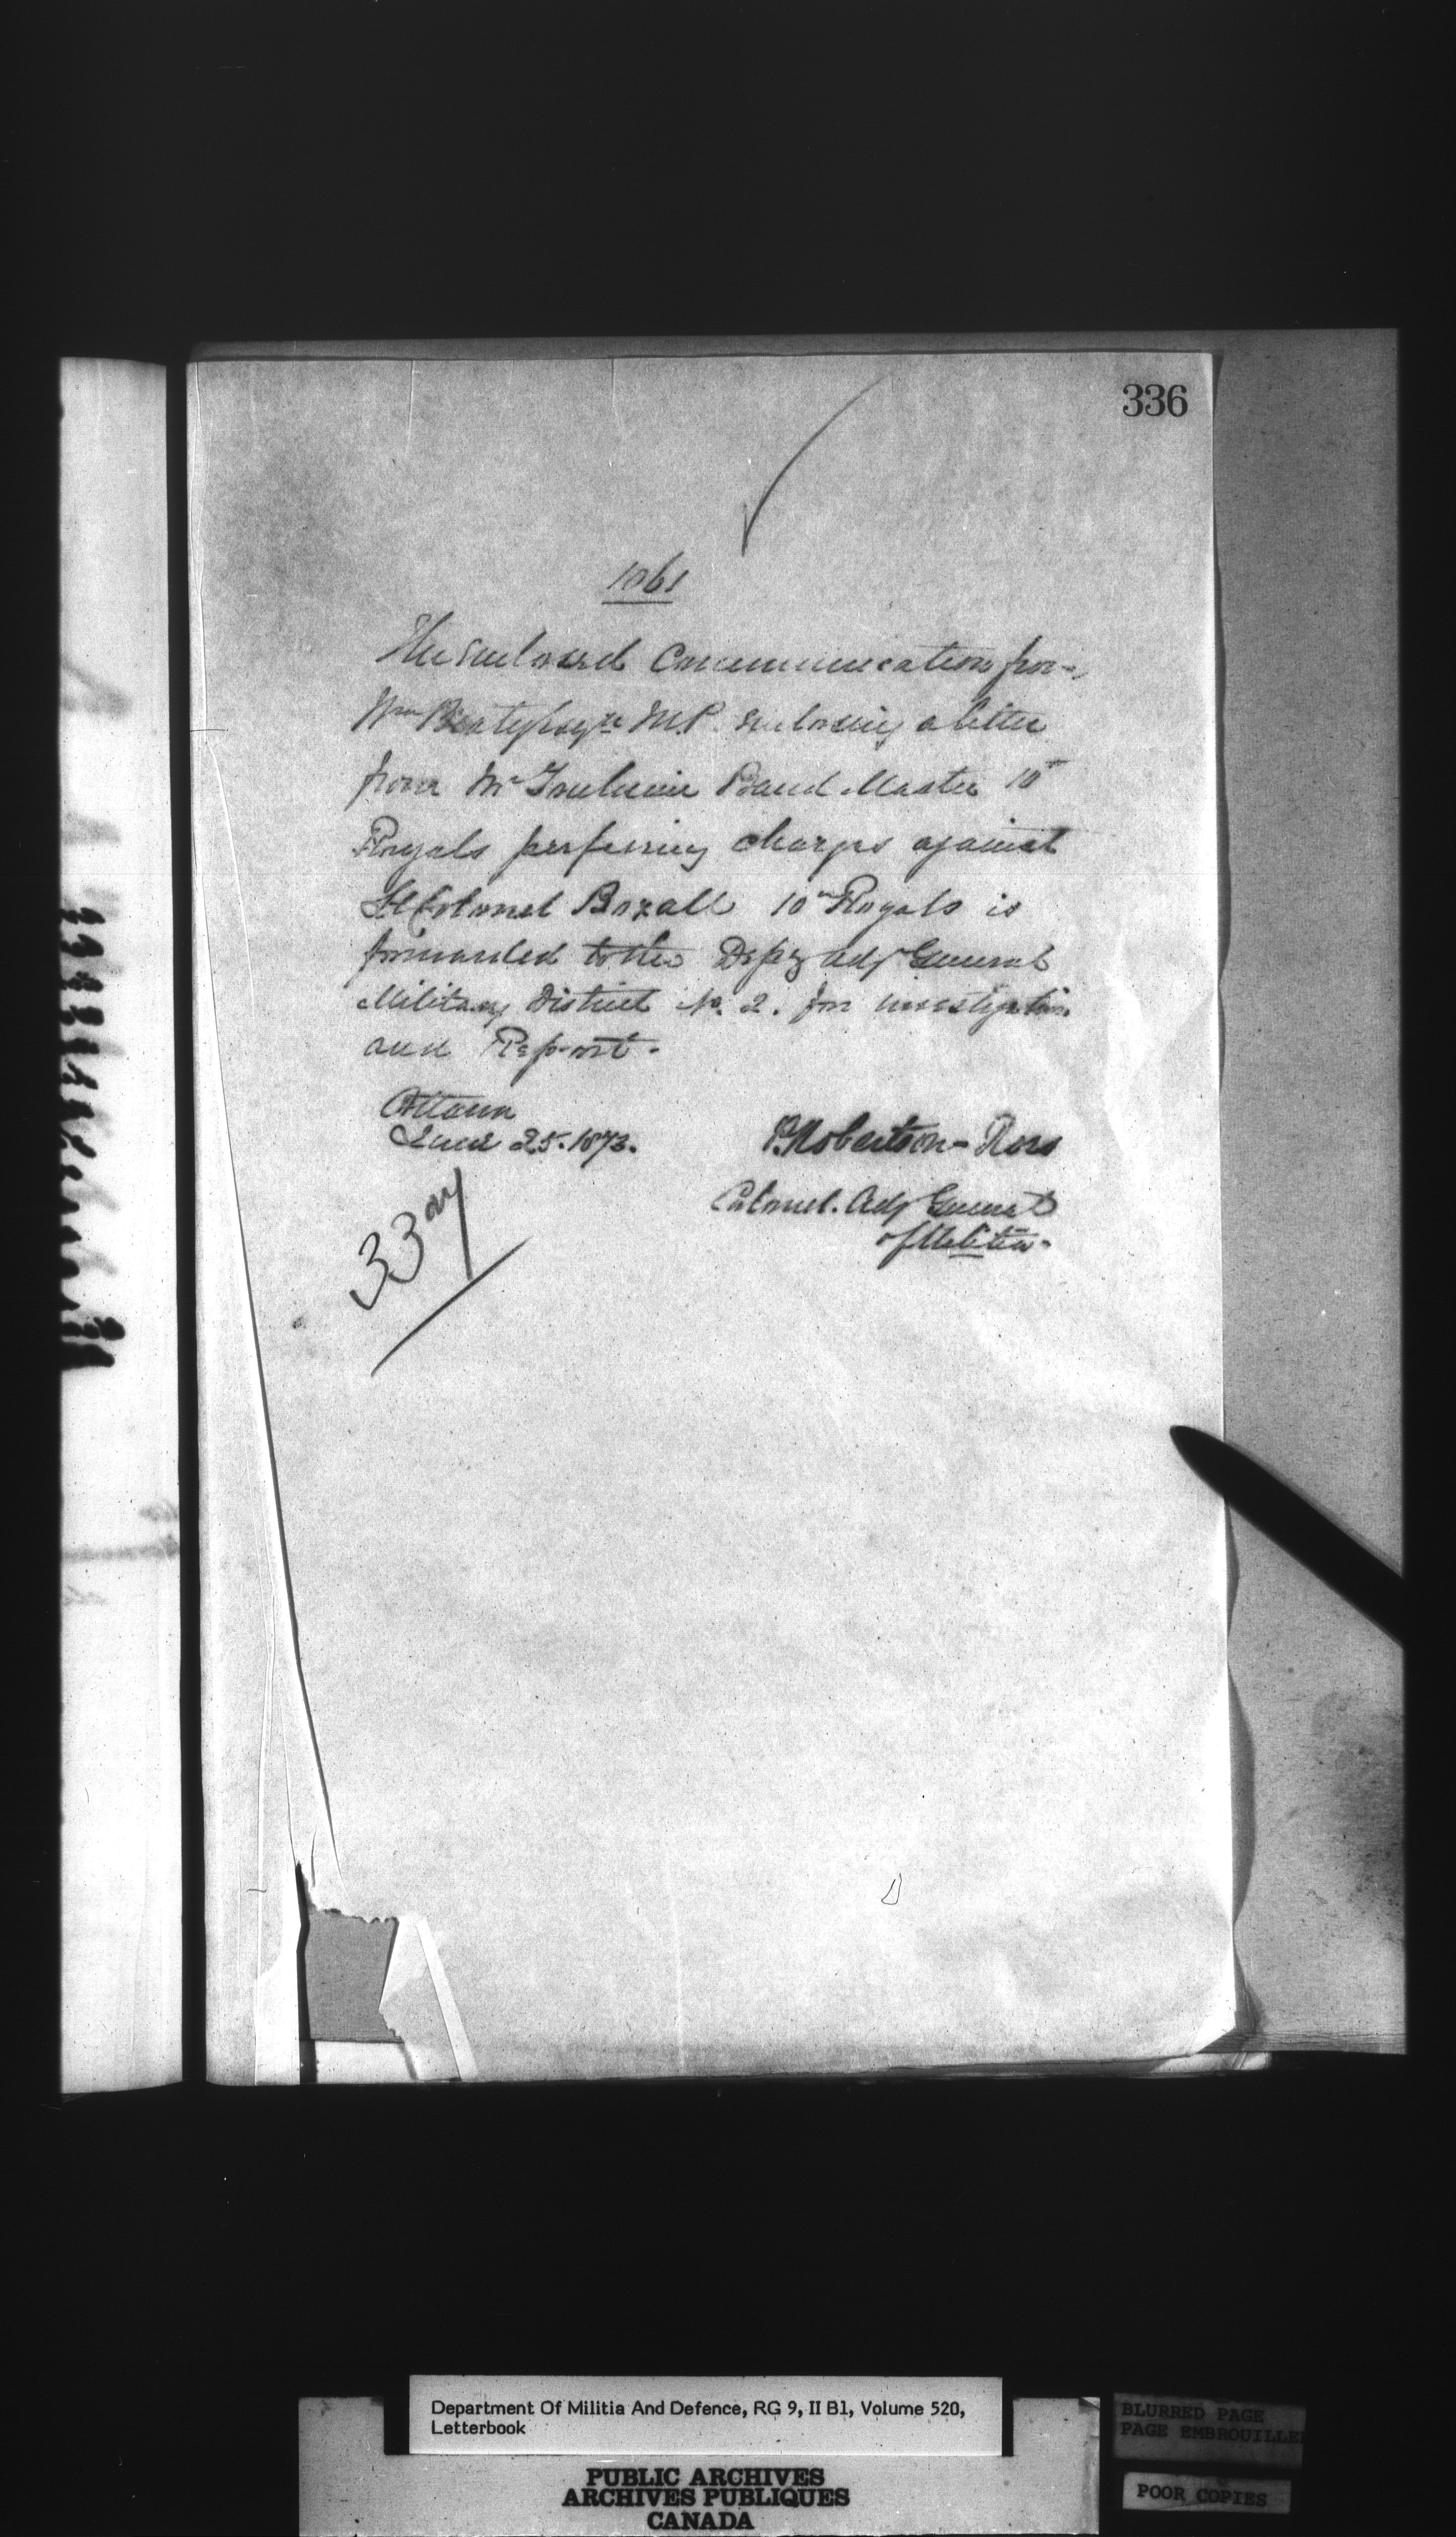 336
1061
The enclosed Communication from
Wm Beaty Esqre M.P. enclosing a letter
from Mr Band Master 10th
Royals preferring charges against
Lt Colonel Boxall 10th Royals is
forwarded to the Depy Adj General
Military District No. 2. for investigation
and Report-
Ottawa
June 25. 1873.
P. Robertson-Ross
Colonel. Adj General
of Militia-
33
Department Of Militia And Defence, RG 9, II B1, Volume 520,
Letterbook
PUBLIC ARCHIVES
ARCHIVES PUBLIQUES
CANADA
BLURRED PAGE
PAGE EMBROUILLE
POOR COPIES